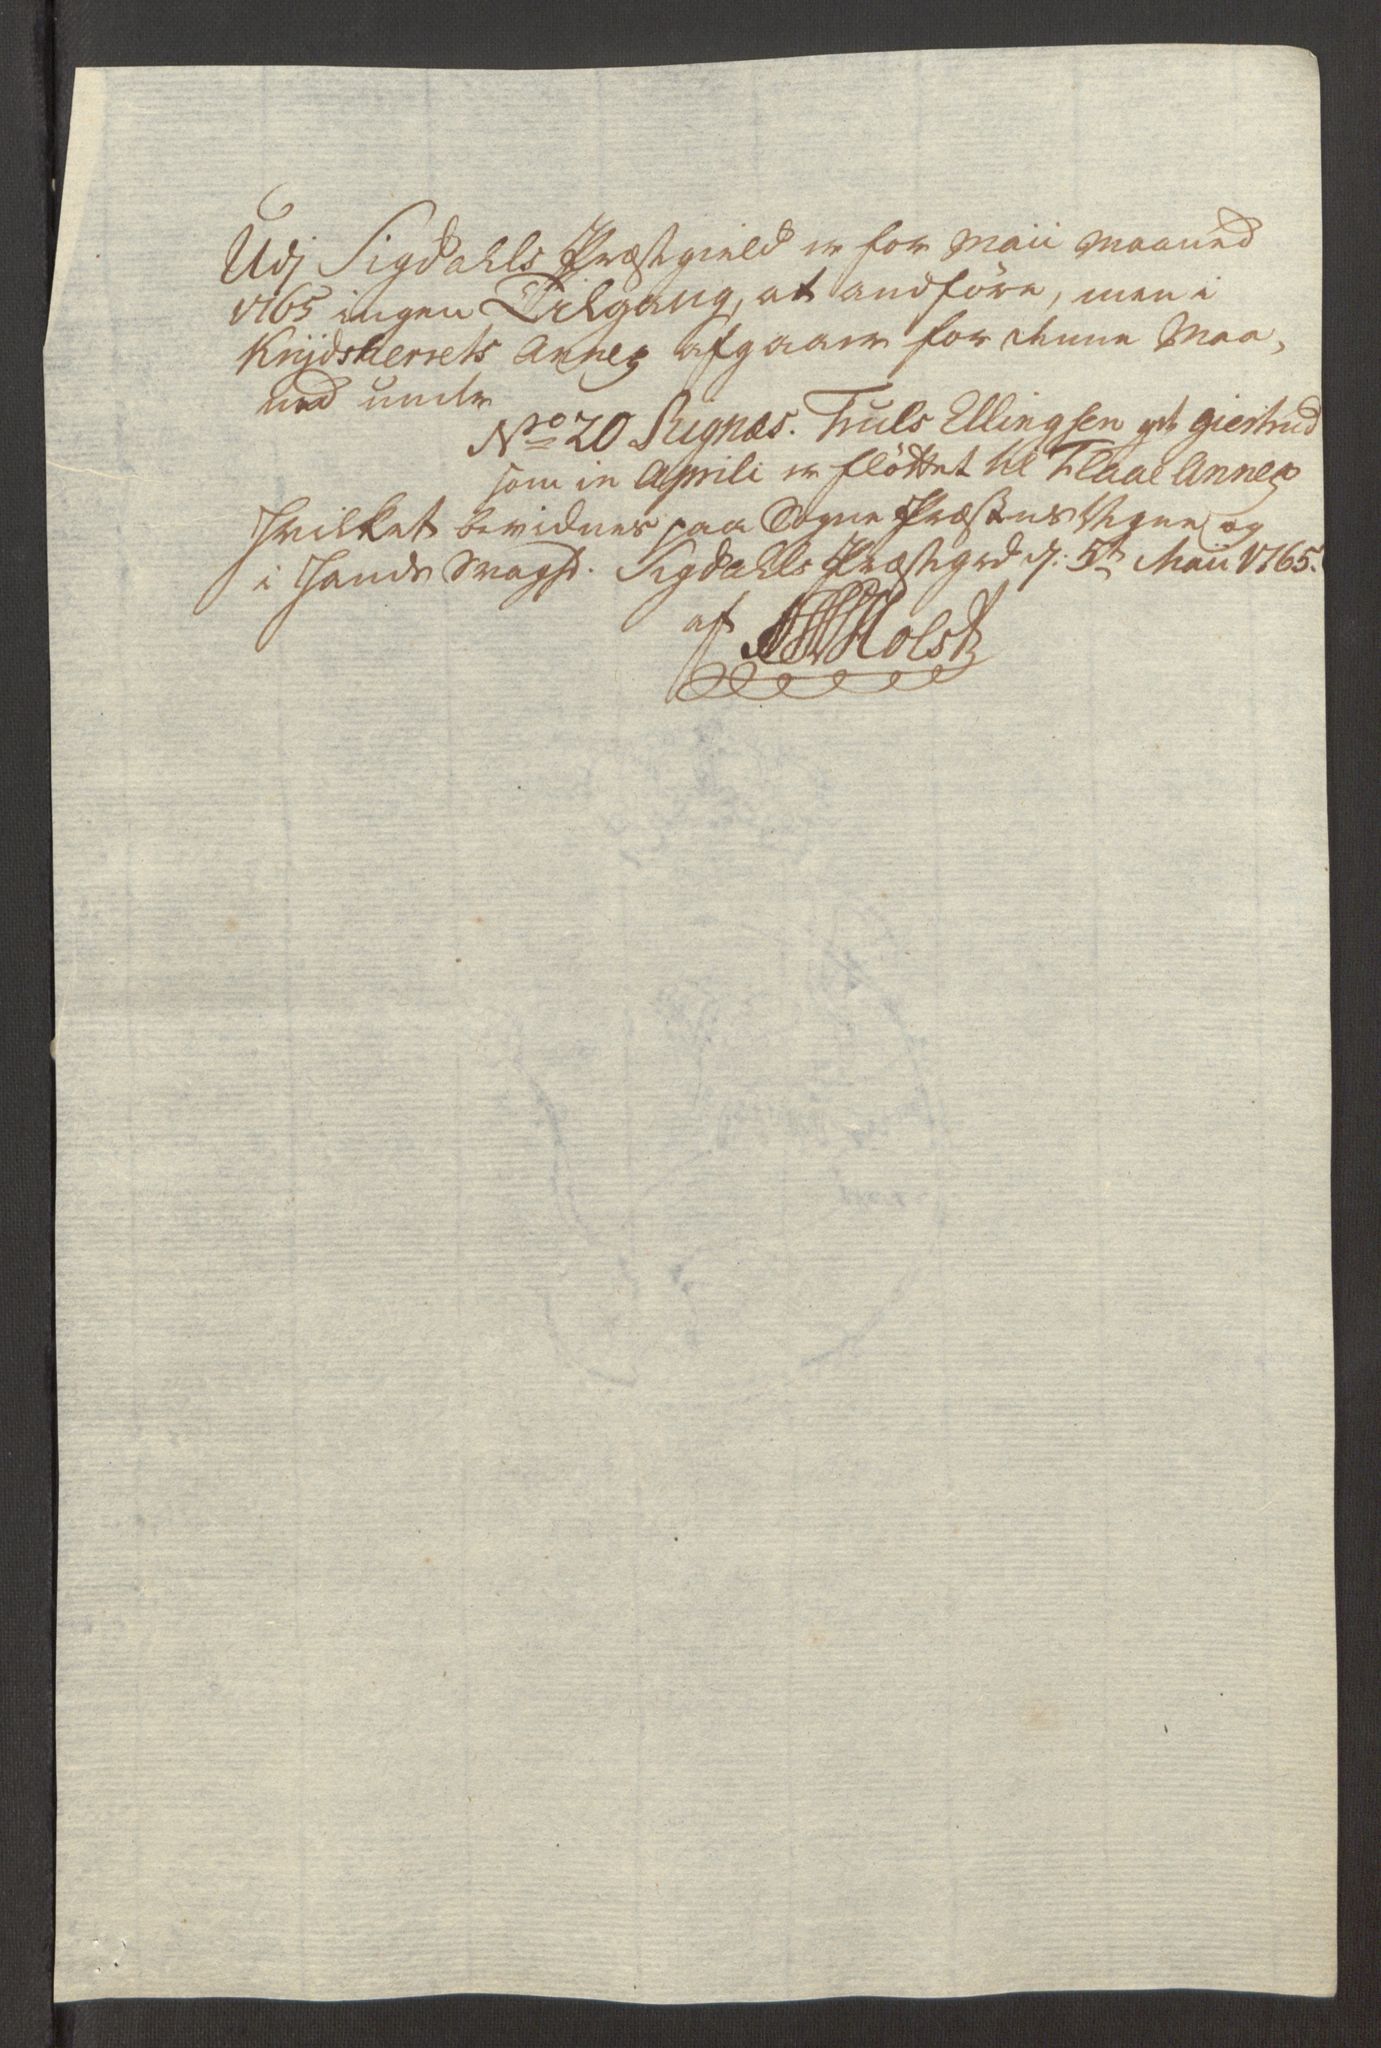 Udj Sigdahls Præstegield er for Maii Maaned
1765 ingen Tilgang, at andføre, men i
Krydsherrets Annex afgaaer for denne Maa,
ned under
No 20 Rugnæs. Truls Ellingsen gvt Giertrud
som in Aprili er fløttet til Flaae Annex
Hvilket bevidnes paa Sogne Præstens Vegne og
i Hands Svaghd. Sigdahls Præstegrd d: 5te Maii 1765.
af Holst